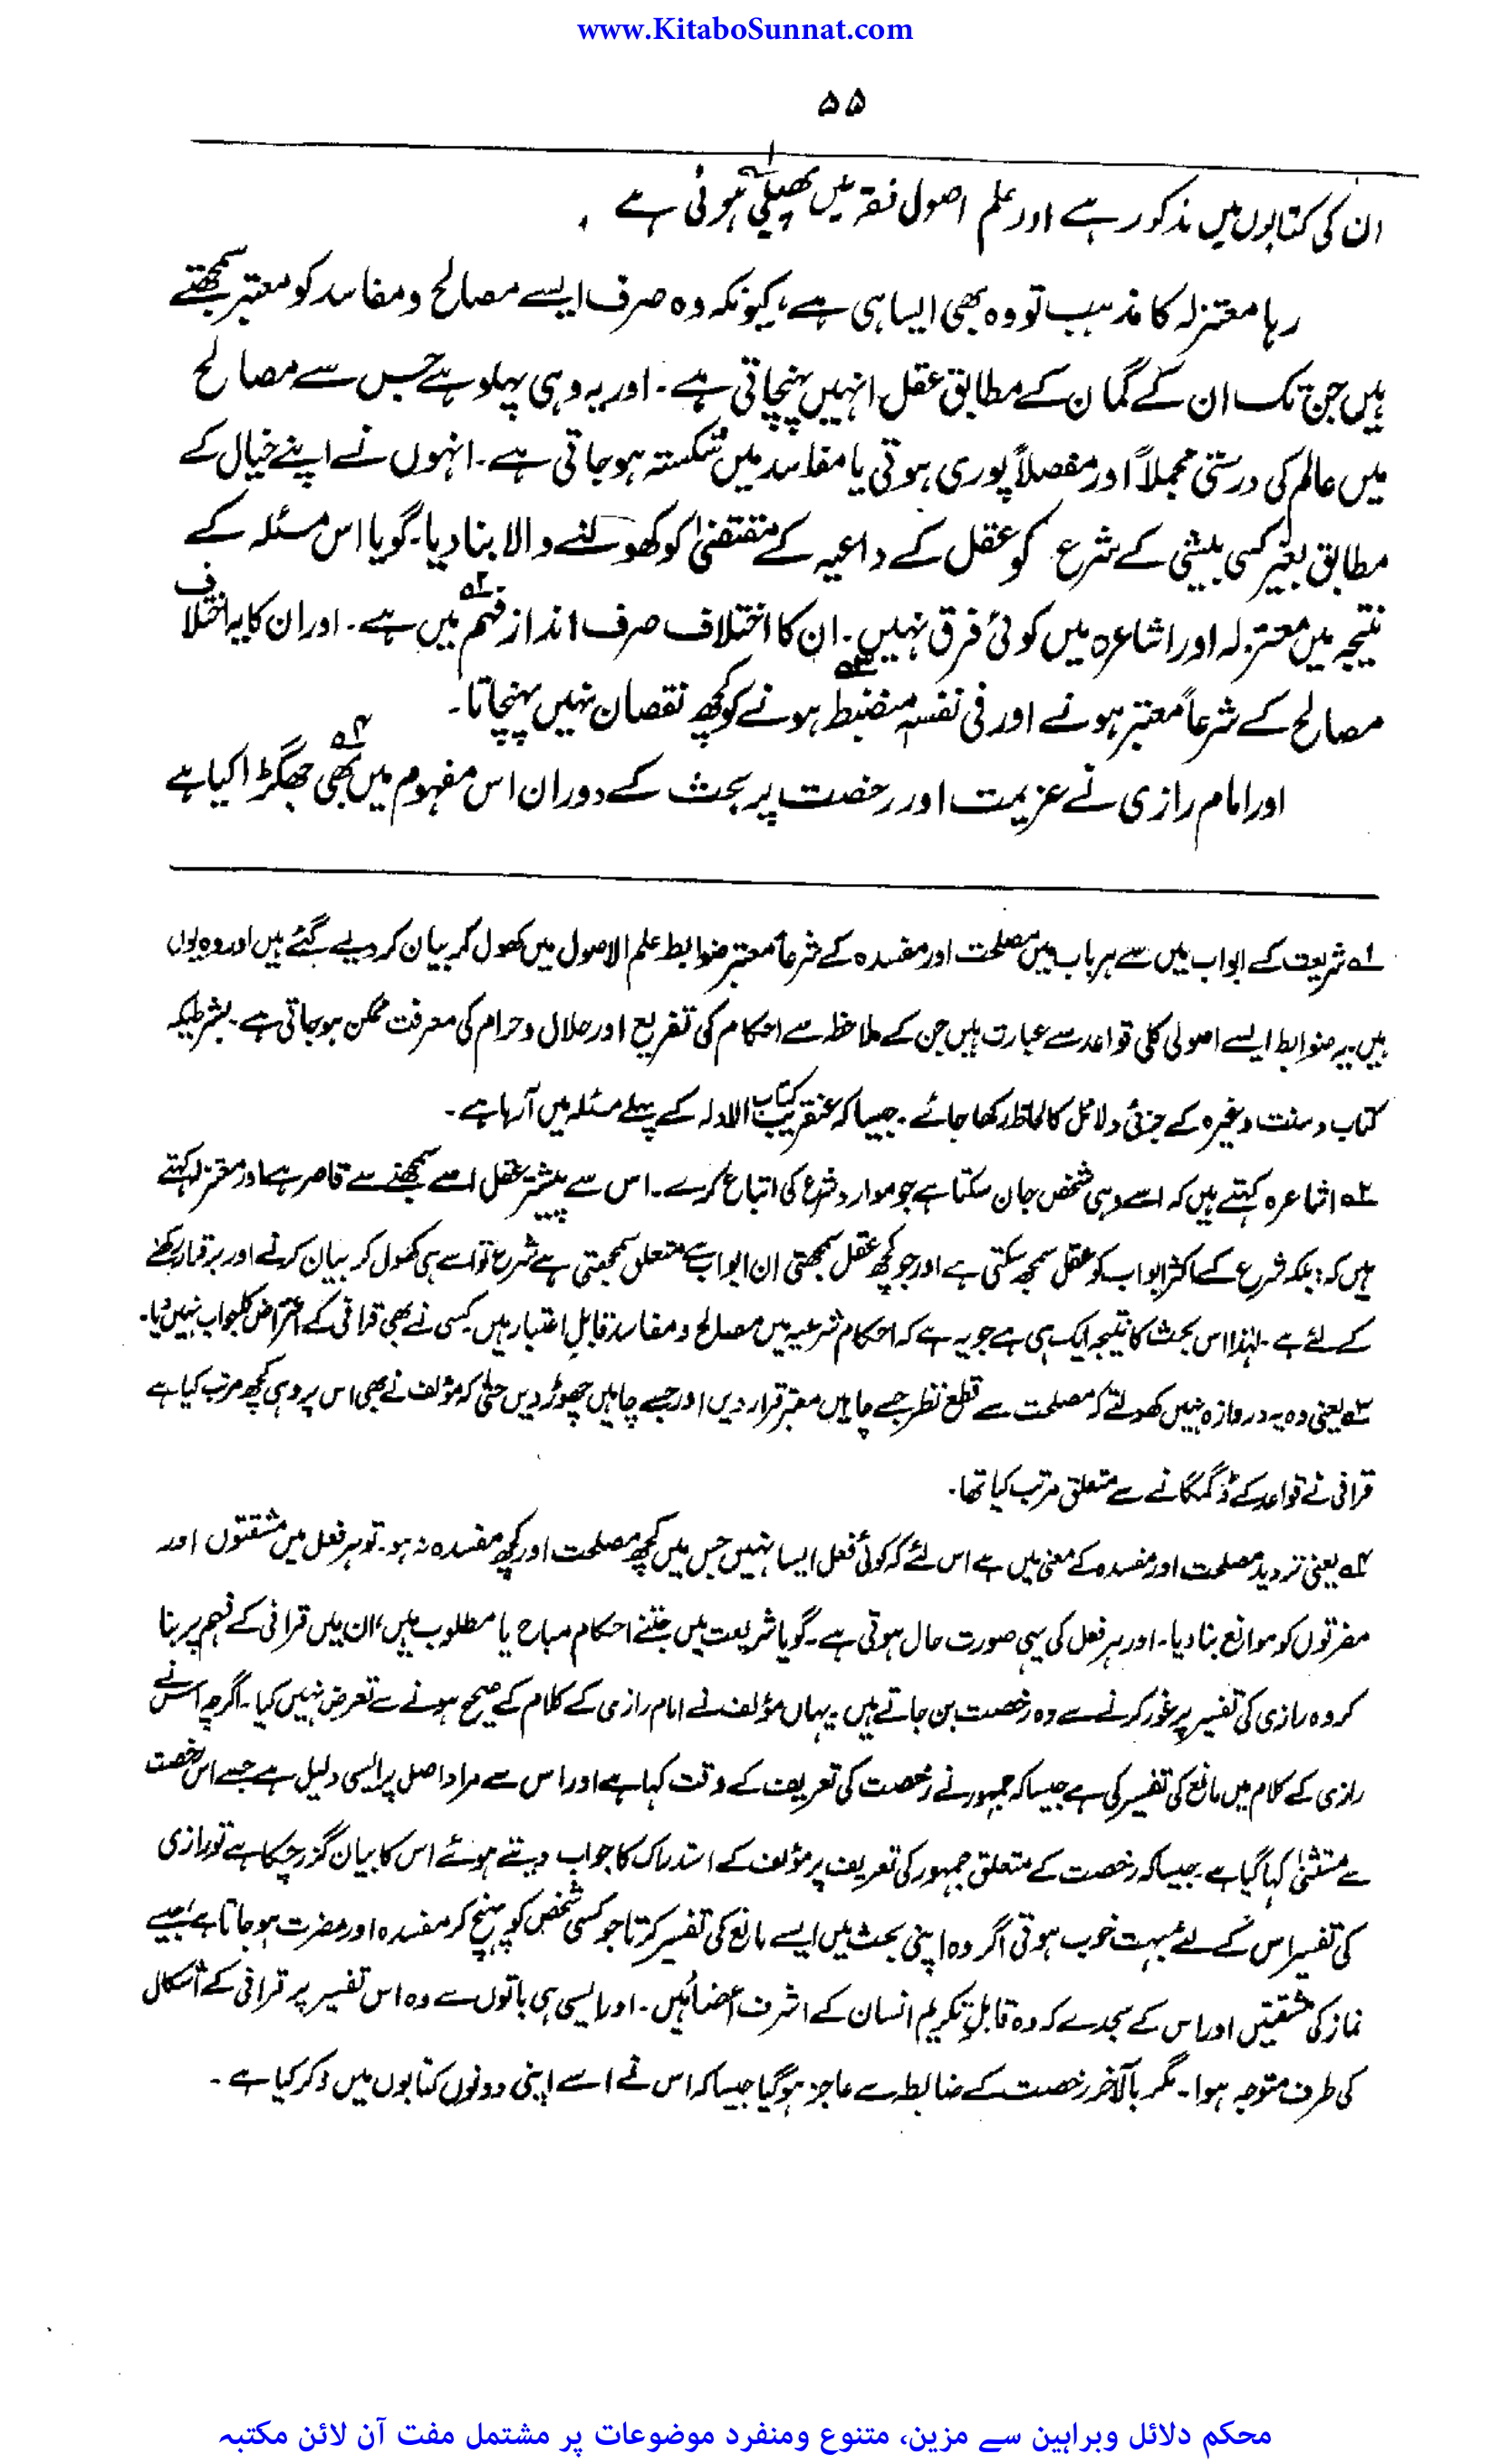 www.KitaboSunnat.com
۵۵
ان کی کتابوں میں مذکور ہے اور علم اصول فقہ میں پھیلی ہوئی ہے ۔
رہا معتزلہ کا مذہب تو وہ بھی ایسا ہی ہے، کیونکہ وہ صرف ایسے مصالح ومفاسد کو معتبر سمجھتے
ہیں جن تک ان کے گمان کے مطابق عقل انہیں پہنچاتی ہے۔ اور یہ وہی پہلو ہے جس سے مصالح
میں عالم کی درستی مجملاً اور مفصلاً پوری ہوتی یا مفاسد میں شکستہ ہو جاتی ہے۔ انہوں نے اپنے خیال کے
مطابق بغیر کسی بیشی کے شرع کو عقل کے داعیہ کے مقتضیٰ کو کھولنے والا بنا دیا۔ گویا اس مسئلہ کے
نتیجہ میں معتزلہ اور اشاعرہ میں کوئی فرق نہیں۔ ان کا اختلاف صرف انداز فہم میں ہے۔ اور ان کا یہ اختلاف
مصالح کے شرعاً معتبر ہونے اور فی نفسہٖ منضبط ہونے کو کچھ نقصان نہیں پہنچاتا۔
اور امام رازی نے عزیمت اور رخصت پر بحث کے دوران اس مفہوم میں بھی جھگڑا کیا ہے
۱؎ شریعت کے ابواب میں سے ہر باب میں مصلحت اور مفسدہ کے شرعاً معتبر ضوابط علم الاصول میں کھول کر بیان کر دیے گئے ہیں اور وہ یوں
ہیں۔ یہ ضوابط ایسے اصولی کلی قواعد سے عبارت ہیں جن کے ملاحظہ سے احکام کی تفریع اور حلال وحرام کی معرفت ممکن ہو جاتی ہے۔ بشرطیکہ
کتاب وسنت وغیرہ کے جزئی دلائل کا لحاظ رکھا جائے۔ جیسا کہ عنقریب کتاب الادلہ کے پہلے مسئلہ میں آرہا ہے۔
۲؎ اشاعرہ کہتے ہیں کہ اسے وہی شخص جان سکتا ہے جو موارد شرع کی اتباع کرے۔ اس سے پیشتر عقل اسے سمجھنے سے قاصر ہے اور معتزلہ کہتے
ہیں کہ: بلکہ شرع کے اکثر ابواب کو عقل سمجھ سکتی ہے اور جو کچھ عقل سمجھتی ان ابواب سے متعلق سمجھتی ہے شرع تو اسے ہی کھول کر بیان کرنے اور برقرار رکھنے
کے لئے ہے۔ لہٰذا اس بحث کا نتیجہ ایک ہی ہے جو یہ ہے کہ احکام شرعیہ میں مصالح ومفاسد قابل اعتبار ہیں۔ کسی نے بھی قرافی کے اعتراض کا جواب نہیں دیا۔
۳؎ یعنی وہ یہ دروازہ نہیں کھولتے کہ مصلحت سے قطع نظر جسے چاہیں معتبر قرار دیں اور جسے چاہیں چھوڑ دیں حتٰی کہ مؤلف نے بھی اس پر وہی کچھ مرتب کیا ہے
قرافی نے قواعد کے ڈگمگانے سے متعلق مرتب کیا تھا۔
۴؎ یعنی تردید مصلحت اور مفسدہ کے معنی میں ہے اس لئے کہ کوئی فعل ایسا نہیں جس میں کچھ مصلحت اور کچھ مفسدہ نہ ہو۔ تو ہر فعل میں مشقتوں اور
مضرتوں کو موانع بنا دیا۔ اور ہر فعل کی یہی صورت حال ہوتی ہے۔ گویا شریعت میں جتنے احکام مباح یا مطلوب ہیں، ان میں قرافی کے فہم پر بنا
کر وہ رازی کی تفسیر پر غور کرنے سے وہ رخصت بن جاتے ہیں۔ یہاں مؤلف نے امام رازی کے کلام کے صحیح ہونے سے تعرض نہیں کیا۔ اگرچہ اس نے
رازی کے کلام میں مانع کی تفسیر کی ہے جیسا کہ جمہور نے رخصت کی تعریف کے وقت کہا ہے اور اس سے مراد اصل پر ایسی دلیل ہے جسے اس رخصت
سے مستثنیٰ کہا گیا ہے۔ جیسا کہ رخصت کے متعلق جمہور کی تعریف پر مؤلف کے استدراک کا جواب دیتے ہوئے اس کا بیان گزر چکا ہے تو رازی
کی تفسیر اس کے لئے بہت خوب ہوتی اگر وہ اپنی بحث میں ایسے مانع کی تفسیر کرتا جو کسی شخص کو پہنچ کر مفسدہ اور مضرت ہو جاتا ہے، جیسے
نماز کی مشقتیں اور اس کے سجدے کہ وہ قابل تکریم انسان کے اشرف اعضا ہیں۔ اور ایسی ہی باتوں سے وہ اس تفسیر پر قرافی کے اشکال
کی طرف متوجہ ہوا۔ مگر بالآخر رخصت کے ضابطہ سے عاجز ہو گیا جیسا کہ اس نے اسے اپنی دونوں کتابوں میں ذکر کیا ہے۔
محکم دلائل وبراہین سے مزین، متنوع ومنفرد موضوعات پر مشتمل مفت آن لائن مکتبہ